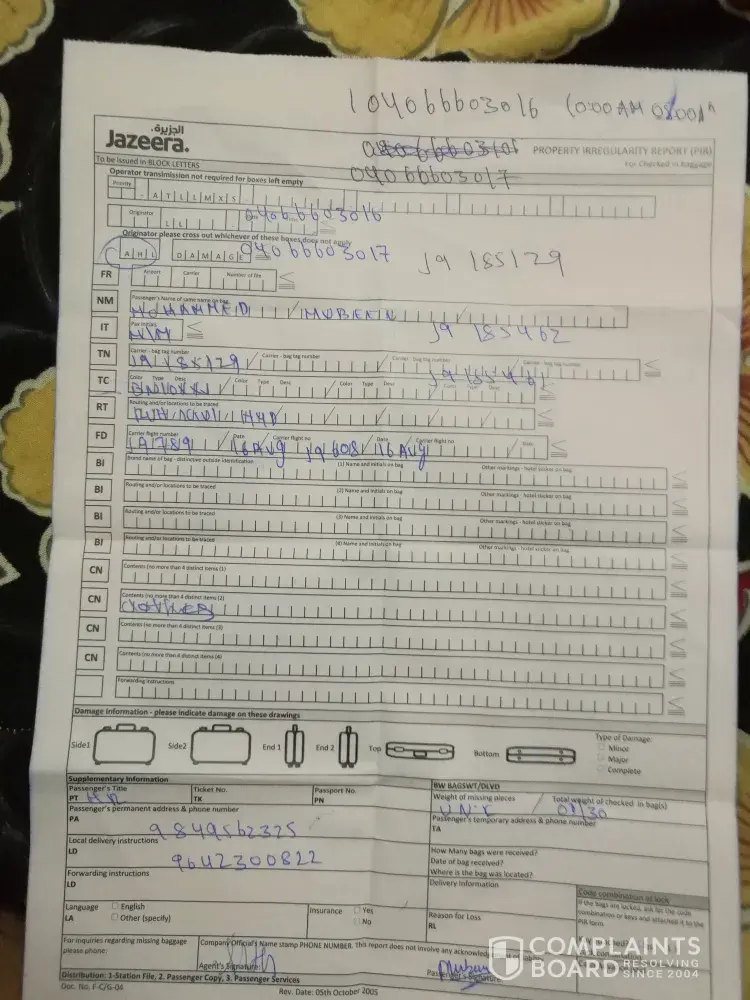 04066603016 (0:00 AM
الجزيرة.
Jazeera.
PROPERTY IRREGULARITY REPORT (PIR)
For Checked in baggage
To be issued in BLOCK LETTERS
Operator transmission not required for boxes left empty
04066603017
Priority
A T L L M X S
Originator
L L
04066603016
Originator please cross out whichever of these boxes does not apply
A H L DAMAGE
04066603017
J9 185129
FR Airport Carrier Number of file
NM Passenger's Name of same name on bag
MOHAMMED / MUBEEN
IT Pax Initials
J9 185462
TN Carrier - bag tag number Carrier - bag tag number Carrier - bag tag number Carrier - bag tag number
TC Color Type Desc Color Type Desc Color Type Desc Color Type Desc
RT Routing and/or locations to be traced
FD Carrier flight number Date Carrier flight no Date Carrier flight no Date
16 Aug J9 608 / 16 Aug
BI Brand name of bag - distinctive outside identification (1) Name and initials on bag Other markings - hotel sticker on bag
BI Routing and/or locations to be traced (2) Name and initials on bag Other markings - hotel sticker on bag
BI Routing and/or locations to be traced (3) Name and initials on bag Other markings - hotel sticker on bag
BI Routing and/or locations to be traced (4) Name and initials on bag Other markings - hotel sticker on bag
CN Contents (no more than 4 distinct items (1)
CN Contents (no more than 4 distinct items (2)
CN Contents (no more than 4 distinct items (3)
CN Contents (no more than 4 distinct items (4)
Forwarding instructions
Damage Information - please indicate damage on these drawings
Side1 Side2 End 1 End 2 Top Bottom
Type of Damage:
Minor
Major
Complete
Supplementary Information
BW BAGSWT/DLVD
Passenger's Title Ticket No. Passport No.
PT MR TK PN
Weight of missing pieces Total weight of checked in bag(s)
01/30
Passenger's permanent address & phone number
PA
9849562325
Passenger's temporary address & phone number
TA
Local delivery instructions
LD
9642300822
How Many bags were received?
Date of bag received?
Where is the bag was located?
Forwarding instructions
LD
Delivery Information
Code combination of lock
If the bags are locked, ask for the code combination or keys and attached it to the PIR form
Language English
LA Other (specify)
Insurance Yes
No
Reason for Loss
RL
For inquiries regarding missing baggage please phone:
Company Official's Name stamp PHONE NUMBER. This report does not involve any acknowledgement
Agent's Signature
Passenger's Signature
Distribution: 1-Station File, 2. Passenger Copy, 3. Passenger Services
Doc. No. F-C/G-04
Rev. Date: 05th October 2005
COMPLAINTS
BOARD RESOLVING
SINCE 2004